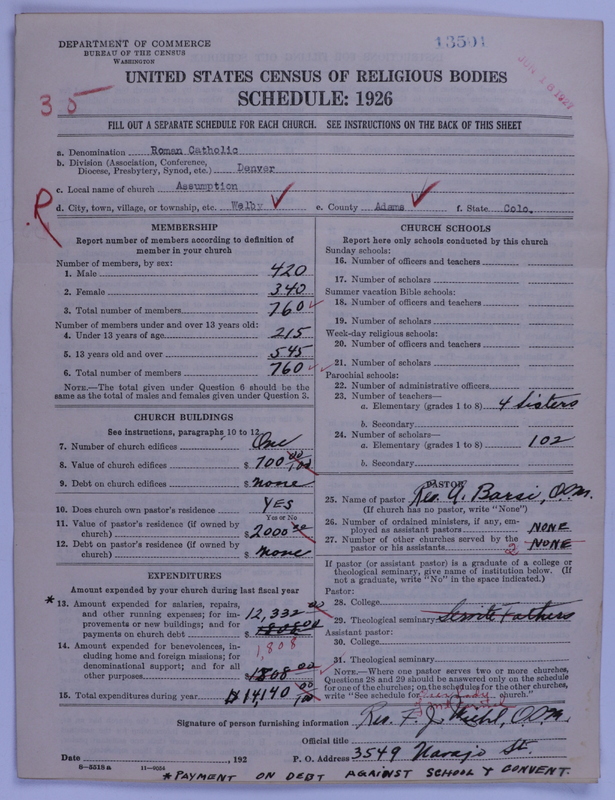 DEPARTMENT OF COMMERCE
BUREAU OF THE CENSUS
WASHINGTON
13504
JUN 16 1927
UNITED STATES CENSUS OF RELIGIOUS BODIES
SCHEDULE: 1926
35
FILL OUT A SEPARATE SCHEDULE FOR EACH CHURCH. SEE INSTRUCTIONS ON THE BACK OF THIS SHEET
a. Denomination Roman Catholic
b. Division (Association, Conference, Diocese, Presbytery, Synod, etc.) Denver
c. Local name of church Assumption
R
d. City, town, village, or township, etc. Welby e. County Adams f. State Colo.
MEMBERSHIP
Report number of members according to definition of
member in your church
Number of members, by sex:
1. Male 420
2. Female 340
3. Total number of members 760
Number of members under and over 13 years old:
4. Under 13 years of age 215
5. 13 years old and over 545
6. Total number of members 760
NOTE.—The total given under Question 6 should be
same as the total of males and females given under Question 3.
CHURCH BUILDINGS
See instructions, paragraphs 10 to 12
7. Number of church edifices One
8. Value of church edifices $ 700 00/100
9. Debt on church edifices $ none
10. Does church own pastor's residence YES
Yes or No
11. Value of pastor's residence (if owned by
church) $ 2000 00
12. Debt on pastor's residence (if owned by
church) $ none
EXPENDITURES
Amount expended by your church during last fiscal year
* 13. Amount expended for salaries, repairs,
and other running expenses; for im-
provements or new buildings; and for
payments on church debt $ 12,332 00
1808 00
14. Amount expended for benevolences, in-
cluding home and foreign missions; for
denominational support; and for all
other purposes 1,808
1808 00
15. Total expenditures during year $ 14,140 00/100
CHURCH SCHOOLS
Report here only schools conducted by this church
Sunday schools:
16. Number of officers and teachers
17. Number of scholars
Summer vacation Bible schools:
18. Number of officers and teachers
19. Number of scholars
Week-day religious schools:
20. Number of officers and teachers
21. Number of scholars
Parochial schools:
22. Number of administrative officers
23. Number of teachers—
a. Elementary (grades 1 to 8) 4 Sisters
b. Secondary
24. Number of scholars—
a. Elementary (grades 1 to 8) 102
b. Secondary
PASTOR
25. Name of pastor Rev. A. Barsi, O.S.M.
(If church has no pastor, write "None")
26. Number of ordained ministers, if any, em-
ployed as assistant pastors NONE
27. Number of other churches served by the
pastor or his assistants 2 NONE
If pastor (or assistant pastor) is a graduate of a college or
theological seminary, give name of institution below. (If
not a graduate, write "No" in the space indicated.)
Pastor:
28. College
29. Theological seminary Servite Fathers
Assistant pastor:
30. College
31. Theological seminary
NOTE.—Where one pastor serves two or more churches,
Questions 28 and 29 should be answered only on the schedule
for one of the churches; on the schedules for the other churches,
write "See schedule for church."
Signature of person furnishing information Rev. F. J. O.S.M.
Official title
Date , 192 P. O. Address 3549 Navajo St.
8—5518a 11—9554
*PAYMENT ON DEBT AGAINST SCHOOL & CONVENT.